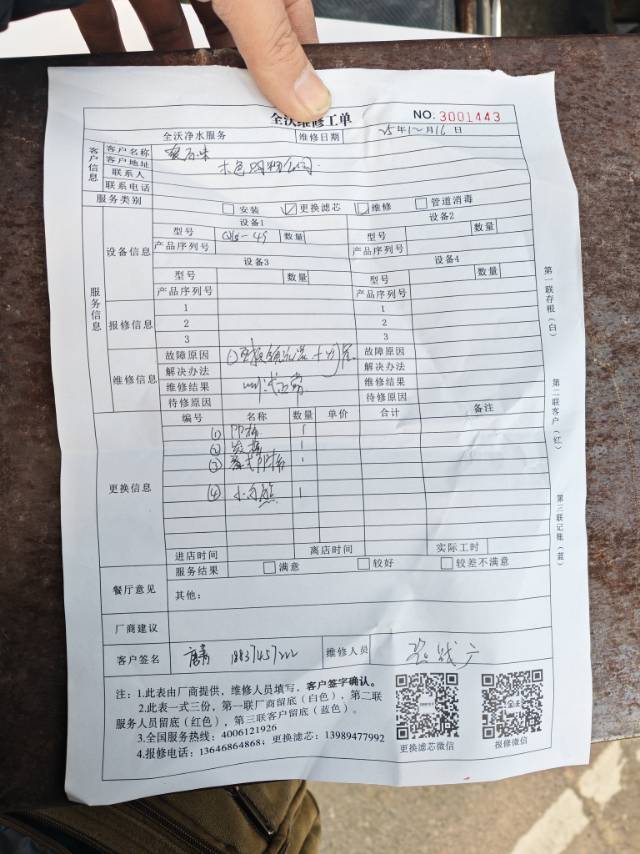 全沃维修工单
NO. 3001443
全沃净水服务 维修日期 25年1月16日
客户信息
客户名称
客户地址
联系人
联系电话
服务类别 安装 更换滤芯 维修 管道消毒
服务信息
设备信息
设备1 设备2
型号 数量 型号 数量
产品序列号 产品序列号
设备3 设备4
型号 数量 型号 数量
产品序列号 产品序列号
报修信息
1 1
2 2
3 3
维修信息
故障原因 故障原因
解决办法 解决办法
维修结果 测试正常 维修结果
待修原因 待修原因
更换信息
编号 名称 数量 单价 合计 备注
① 1
② 1
③ 1
④ 1
进店时间 离店时间 实际工时
餐厅意见
服务结果 满意 较好 较差不满意
其他：
厂商建议
客户签名 维修人员
注：1.此表由厂商提供，维修人员填写，客户签字确认。
2.此表一式三份，第一联厂商留底（白色），第二联
服务人员留底（红色），第三联客户留底（蓝色）。
3.全国服务热线：4006121926
4.报修电话：13646864868；更换滤芯：13989477992
更换滤芯微信 报修微信
第一联存根（白）
第二联客户（红）
第三联记账（蓝）